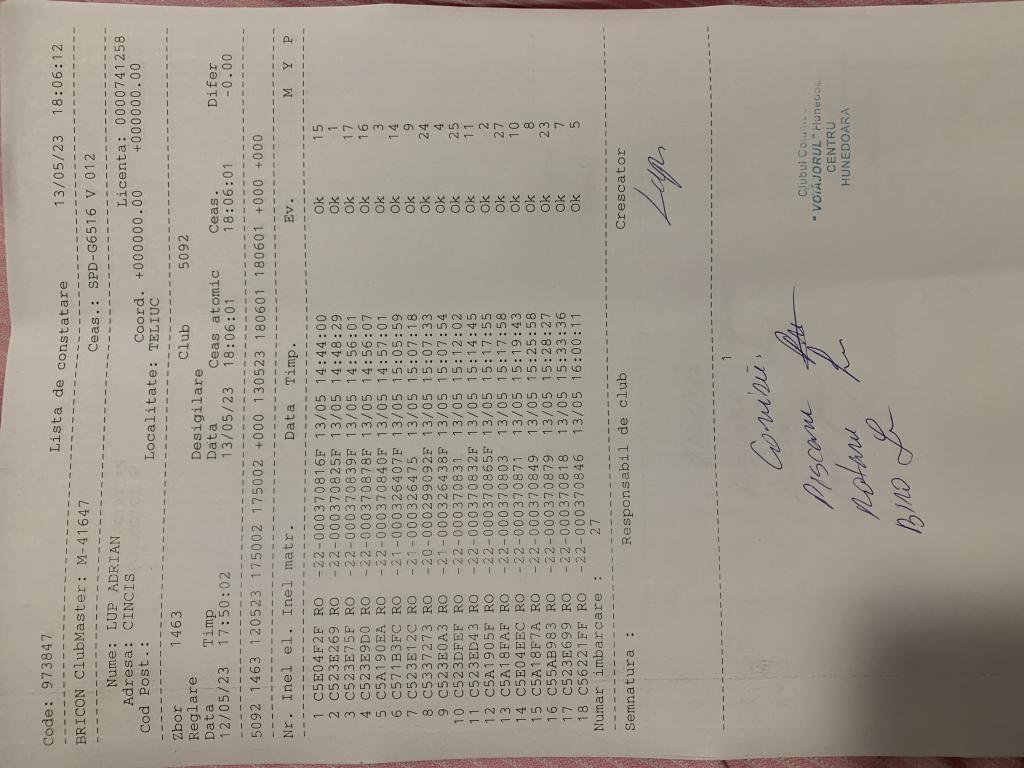 Code: 973847 Lista de constatare 13/05/23 18:06:12
BRICON ClubMaster: M-41647 Ceas.: SPD-G6516 V 012
Nume: LUP ADRIAN Licenta: 0000741258
Adresa: CINCIS Coord. +000000.00 +000000.00
Cod Post.: Localitate: TELIUC
Zbor 1463 Club 5092
Reglare Desigilare
Data Timp Data Ceas atomic Ceas. Difer
12/05/23 17:50:02 13/05/23 18:06:01 18:06:01 -0.00
5092 1463 120523 175002 175002 +000 130523 180601 180601 +000 +000
Nr. Inel el. Inel matr. Data Timp. Ev. M Y P
1 C5E04F2F RO -22-000370816F 13/05 14:44:00 Ok 15
2 C523E269 RO -22-000370895F 13/05 14:48:29 Ok 1
3 C523E75F RO -22-000370839F 13/05 14:56:01 Ok 17
4 C523E9D0 RO -22-000370878F 13/05 14:56:07 Ok 16
5 C5A190EA RO -22-000370840F 13/05 14:57:01 Ok 3
6 C571B3FC RO -21-000326407F 13/05 15:05:59 Ok 14
7 C523E12C RO -21-000326475 13/05 15:07:18 Ok 9
8 C5337273 RO -20-000299092F 13/05 15:07:33 Ok 24
9 C523E0A3 RO -21-000326438F 13/05 15:07:54 Ok 4
10 C523DFEF RO -22-000370831 13/05 15:12:02 Ok 25
11 C523ED43 RO -22-000370832F 13/05 15:14:45 Ok 11
12 C5A1905F RO -22-000370865F 13/05 15:17:55 Ok 2
13 C5A18FAF RO -22-000370803 13/05 15:17:58 Ok 27
14 C5E04EEC RO -22-000370871 13/05 15:19:43 Ok 10
15 C5A18F7A RO -22-000370849 13/05 15:25:58 Ok 8
16 C55AB983 RO -22-000370879 13/05 15:28:27 Ok 23
17 C523E699 RO -22-000370818 13/05 15:33:36 Ok 7
18 C56221FF RO -22-000370846 13/05 16:00:11 Ok 5
Numar imbarcare : 27
Semnatura : Responsabil de club Crescator
Lup
1
Comisie.
Piscanu
Rotaru
Biro
Clubul
"VOIAJORUL" Hunedoa
CENTRU
HUNEDOARA